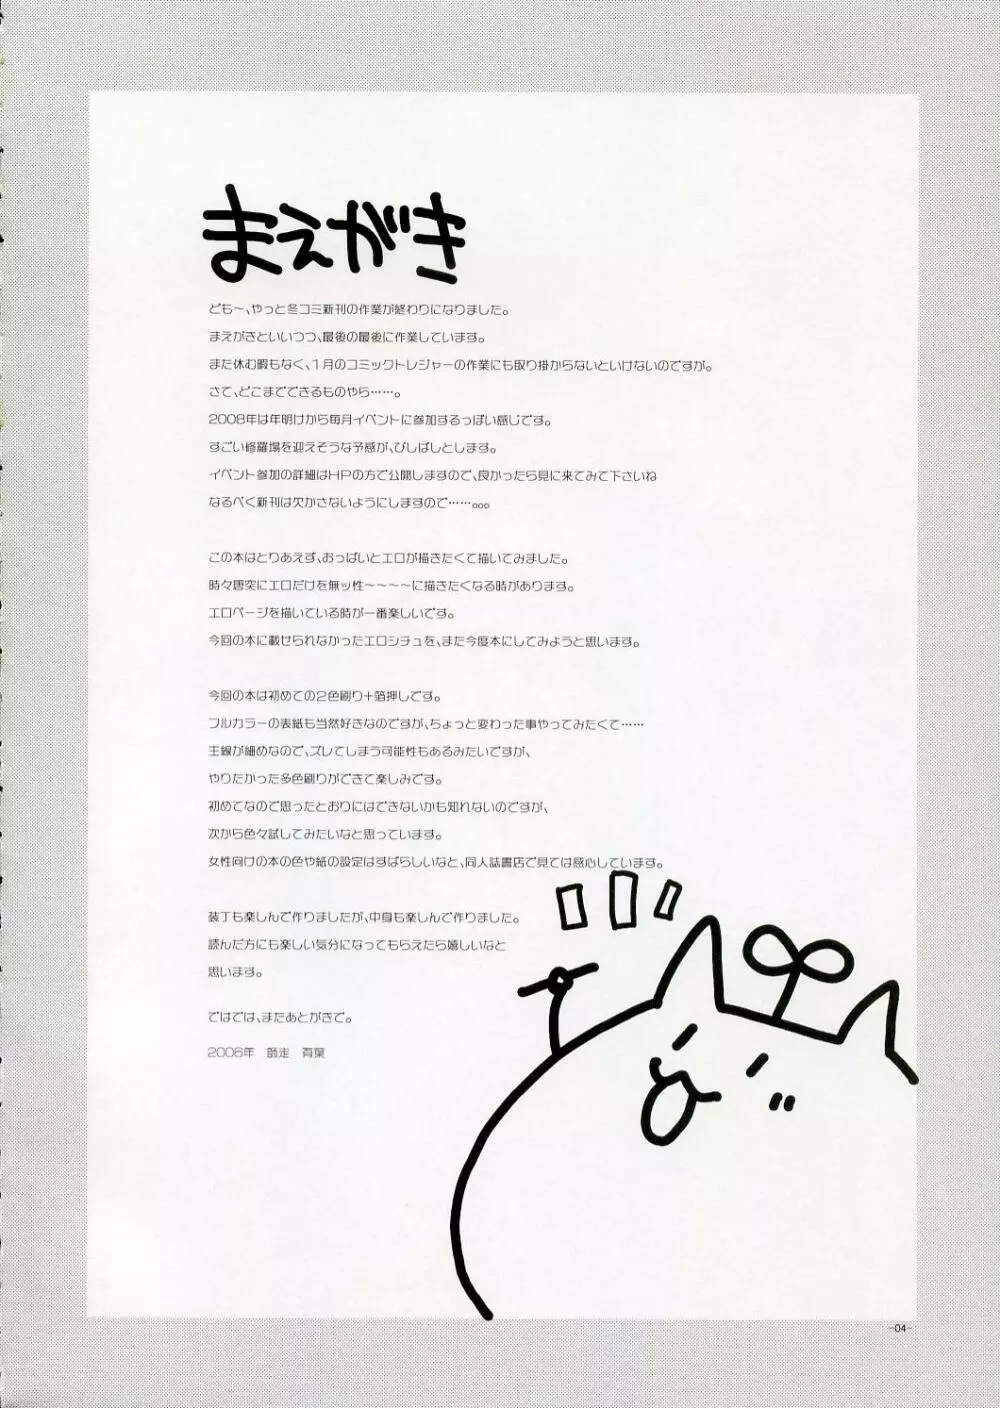 まえがき
ども～、やっと冬コミ新刊の作業が終わりになりました。
まえがきといいつつ、最後の最後に作業しています。
また休む暇もなく、1月のコミックトレジャーの作業にも取り掛からないといけないのですが。
さて、どこまでできるものやら……。
2008年は年明けから毎月イベントに参加するっぽい感じです。
すごい修羅場を迎えそうな予感が、びしばしとします。
イベント参加の詳細はHPの方で公開しますので、良かったら見に来てみて下さいね
なるべく新刊は欠かさないようにしますので……。。。
この本はとりあえず、おっぱいとエロが描きたくて描いてみました。
時々唐突にエロだけを無ッ性～～～～に描きたくなる時があります。
エロページを描いている時が一番楽しいです。
今回の本に載せられなかったエロシチュを、また今度本にしてみようと思います。
今回の本は初めての2色刷り＋箔押しです。
フルカラーの表紙も当然好きなのですが、ちょっと変わった事やってみたくて……
主線が細めなので、ズレてしまう可能性もあるみたいですが、
やりたかった多色刷りができて楽しみです。
初めてなので思ったとおりにはできないかも知れないのですが、
次から色々試してみたいなと思っています。
女性向けの本の色や紙の設定はすばらしいなと、同人誌書店で見ては感心しています。
装丁も楽しんで作りましたが、中身も楽しんで作りました。
読んだ方にも楽しい気分になってもらえたら嬉しいなと
思います。
ではでは、またあとがきで。
2006年 師走 青葉
-04-